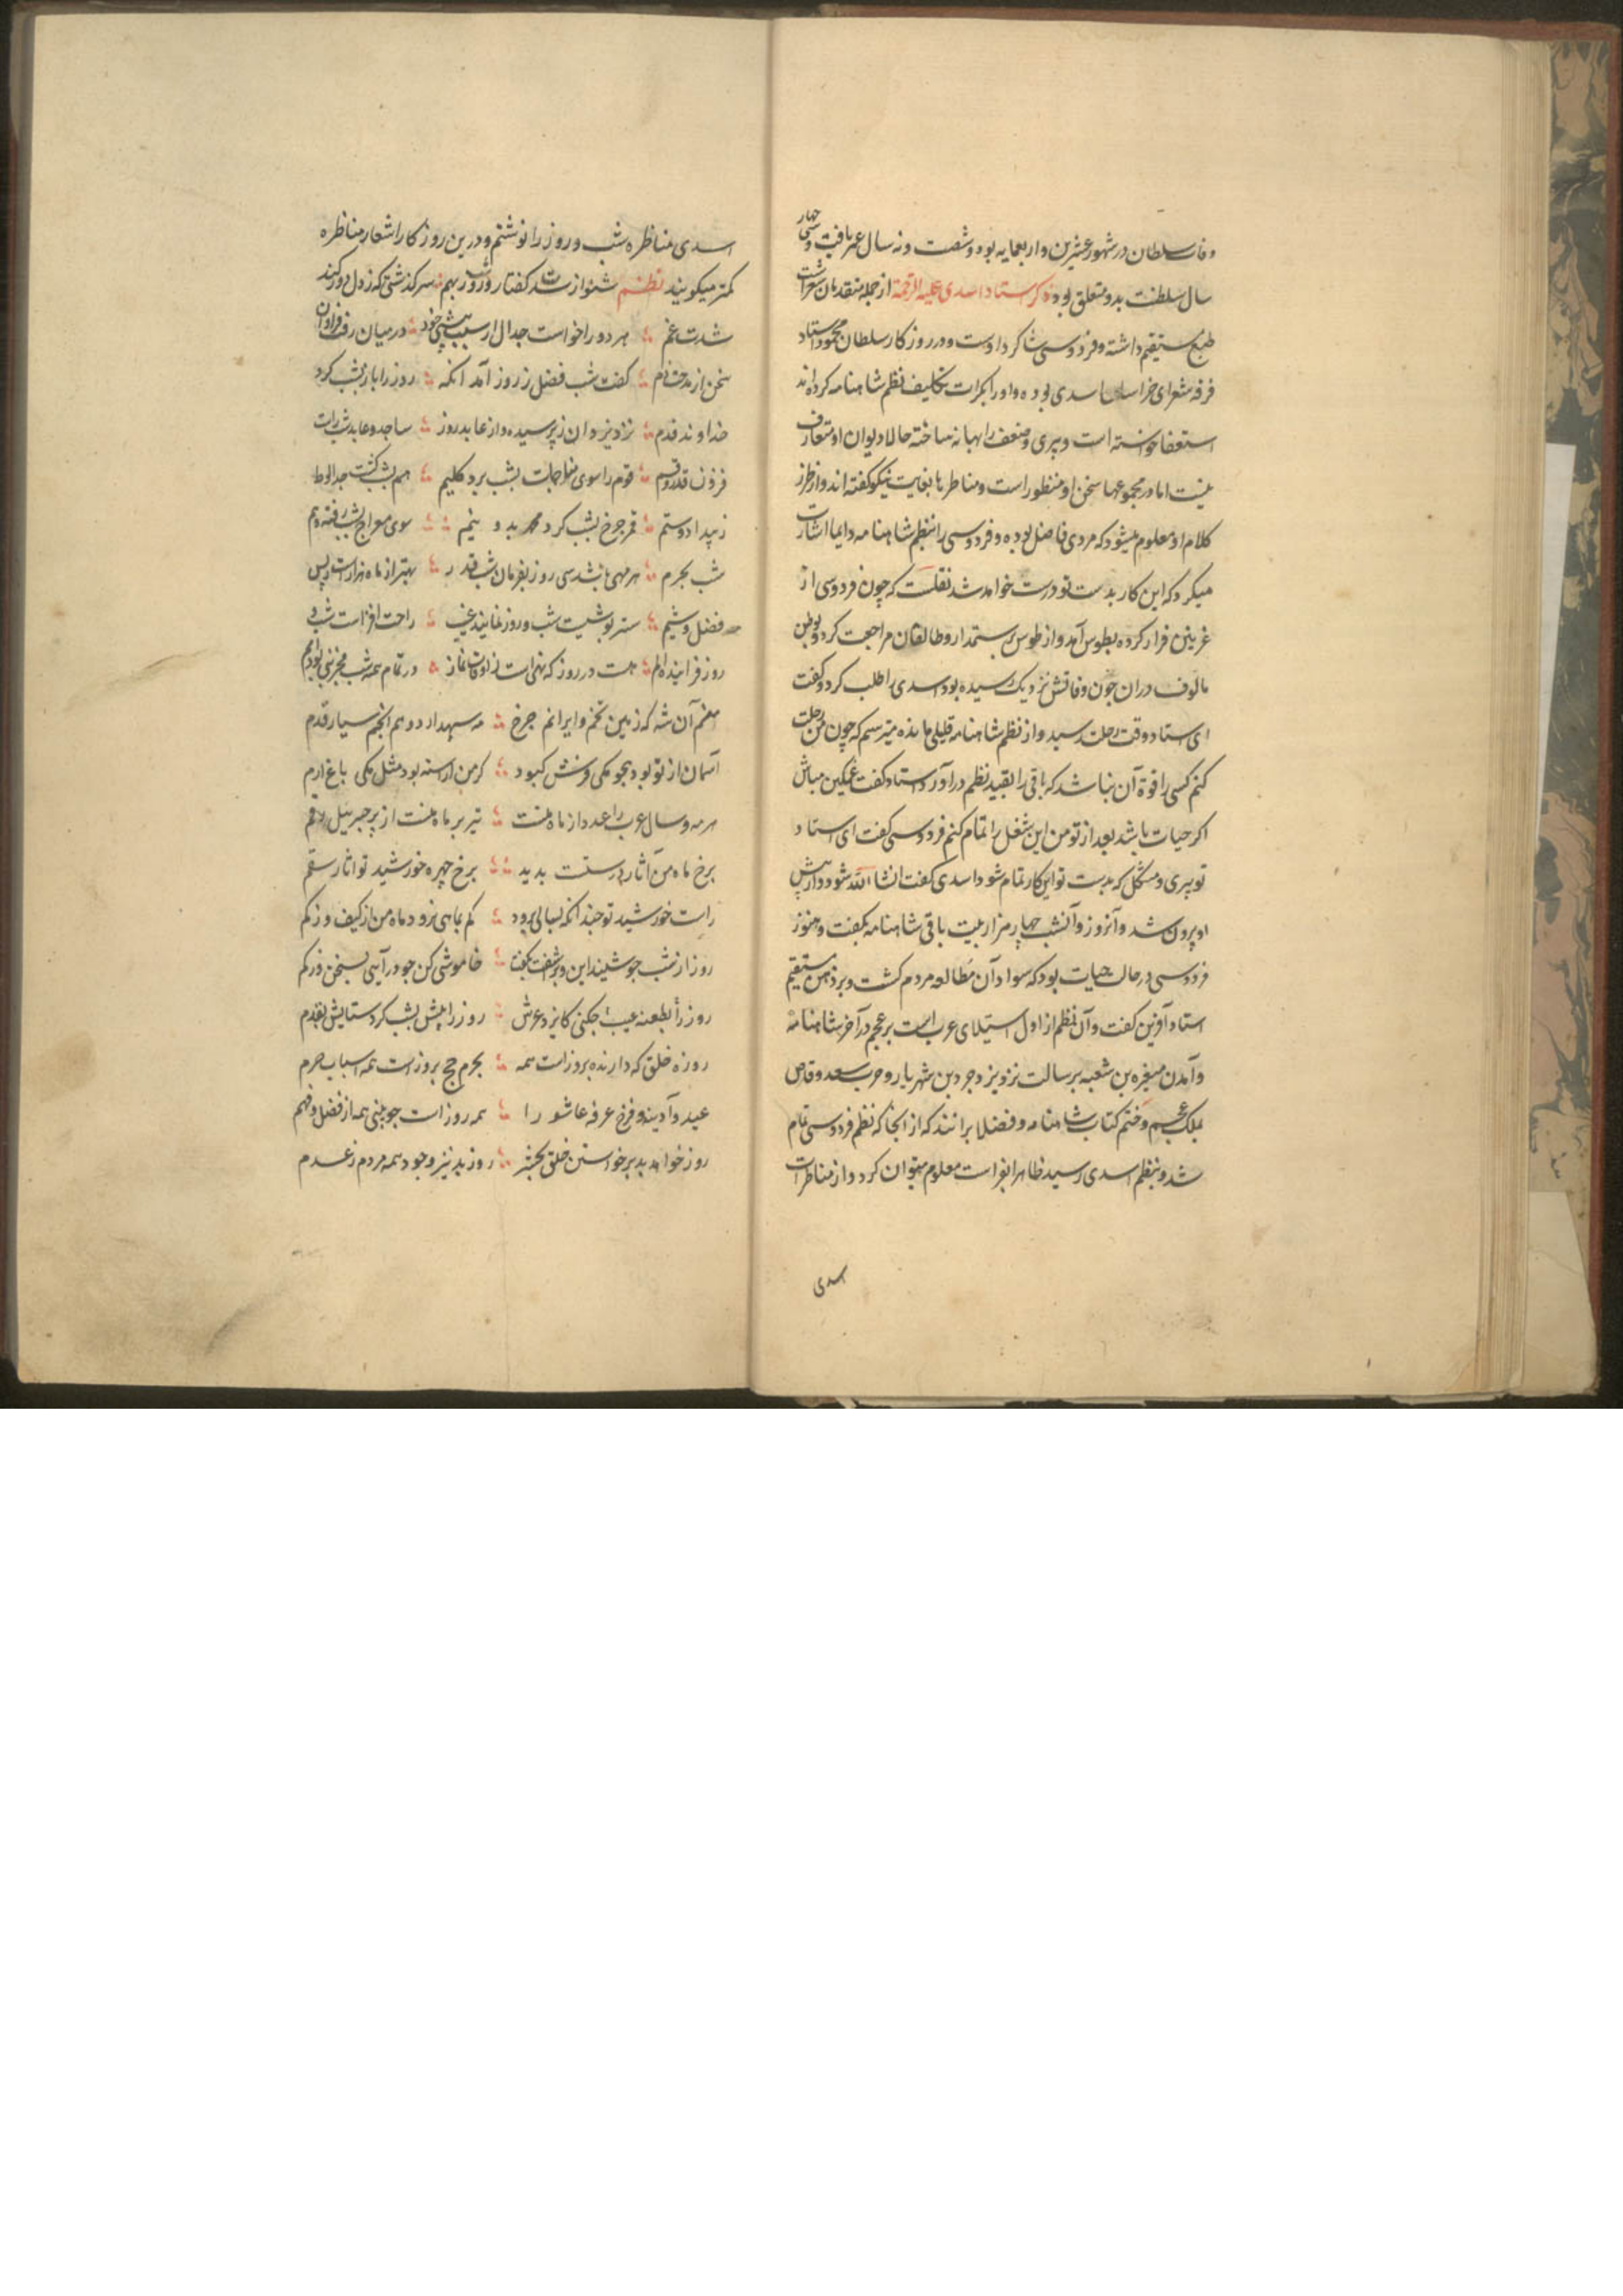 وفات سلطان در شهور عشرین و اربعمایه بوده و شصت و نه سال عمر یافت و سی چهار
سال سلطنت بدو متعلق بود ذکر استاد اسدی علیه الرحمة از جمله متقدمان شعراست
طبع مستقیم داشته و فردوسی شاکرد اوست و در روزکار سلطان محمود استاد
فرقه شعرای خراسان اسدی بوده و او را بکرات تکلیف نظم شاهنامه کرده‌اند
استعفا خواسته است و پیری و ضعف را بهانه ساخته حالا دیوان او متعارف
نیست اما در مجموعها سخن او منظور است و مناظرها بغایت نیکو کفته اند و از طرز
کلام او معلوم میشود که مردی فاضل بوده و فردوسی را بنظم شاهنامه دایما اشارت
میکرد که این کار بدست تو درست خواهد شد نقلست که چون فردوسی از
غزنین فرار کرده بطوس آمد و از طوس برستمدار و طالقان مراجعت کرد و بوطن
مالوف دران چون وفاتش نزدیک رسیده بود اسدی را طلب کرد و کفت
ای استاد وقت رحلت رسید و از نظم شاهنامه قلیلی مانده میترسم که چون من رحلت
کنم کسی را قوة آن نباشد که باقی را بقید نظم درآورد استاد کفت غمکین مباش
اکر حیات باشد بعد از تو من این شغل را تمام کنم فردوسی کفت ای استاد
تو پیری و مشکل که بدست تو این کار تمام شود اسدی کفت انشا الله شود و از پیش
او بیرون شد و آنروز و آنشب چهار هزار بیت باقی شاهنامه بکفت و هنوز
فردوسی در حال حیات بود که سواد آن مطالعه مردم کشت و بر ذهن مستقیم
استاد آفرین کفت و آن نظم از اول استیلای عرب است بر عجم در آخر شاهنامه
و آمدن مغیره بن شعبه برسالت نزد یزدجرد بن شهریار و حرب سعد وقاص
بملک عجم و ختم کتاب شاهنامه و فضلا برانند که از انجا که نظم فردوسی تمام
شد و بنظم اسدی رسید ظاهرا بفراست معلوم میتوان کرد و از مناظرات
اسدی
اسدی مناظره شب و روز را نوشتم و درین روزکار اشعار مناظره
کمتر میکویند نظم شنو از حجت کفتار شب و روز بهم سرکذشتی که ز دل دور کند
شدت غم هر دو را خواست جدال از سبب پیشی خود در میان رفت فراوان
سخن از مدحت و ذم کفت شب فضل ز روز آمد انکه روز را باز ز شب کرد
خداوند قدم نزد یزدان ز پرستیده و از عابد روز ساجد و عابد شب راست
فزون قدر و قسم قوم را سوی مناجات بشب برد کلیم هم بشب کشت جدا لوط
ز بیداد و ستم قمر چرخ بشب کرد محمد بدو نیم سوی معراج بشب رفت هم
شب بحرم هر مهی باشد سی روز بفرمان شب قدر بهتر از ماه هزار است ز بس
فضل و شیم ستر پوشیست شب و روز نماینده عیب راحت افزاست شب و
روز فزاینده الم هست در روز که نهی است ز اوقات نماز در تمام همه شب
منم آن شه که زمین تخم و ایوانم چرخ مه سپهدار و همه انجم سیار قدم
آسمان از تو بود همچو یکی فرش کبود کز من آراسته بود مثل یکی باغ ارم
هر مه و سال عرب را عدد از ماه منست نیز بر ماه منست از پر جبریل رقم
برخ ماه من آثار درستست پدید برخ چهره خورشید تو اثار سقم
راست خورشید تو چند انکه بسالی برود کم بماهی برود ماه من از کیف و ز کم
روز از شب چو شنید این و برآشفت بکفت خاموشی کن چو در آیی بسخن
روز را بطعنه عیب چکنی کایزد عرش روز را پیش بشب کرد ستایش بقدم
روزه خلق که دارند بروز است همه بحرم حج بروز است همه اسباب حرم
عید و آدینه و فرخ عرفه عاشورا همه روز است چو بینی همه از فضل و فهم
روز خواهد بد برخواستن خلق بحشر روز بد نیز وجود همه مردم ز عدم